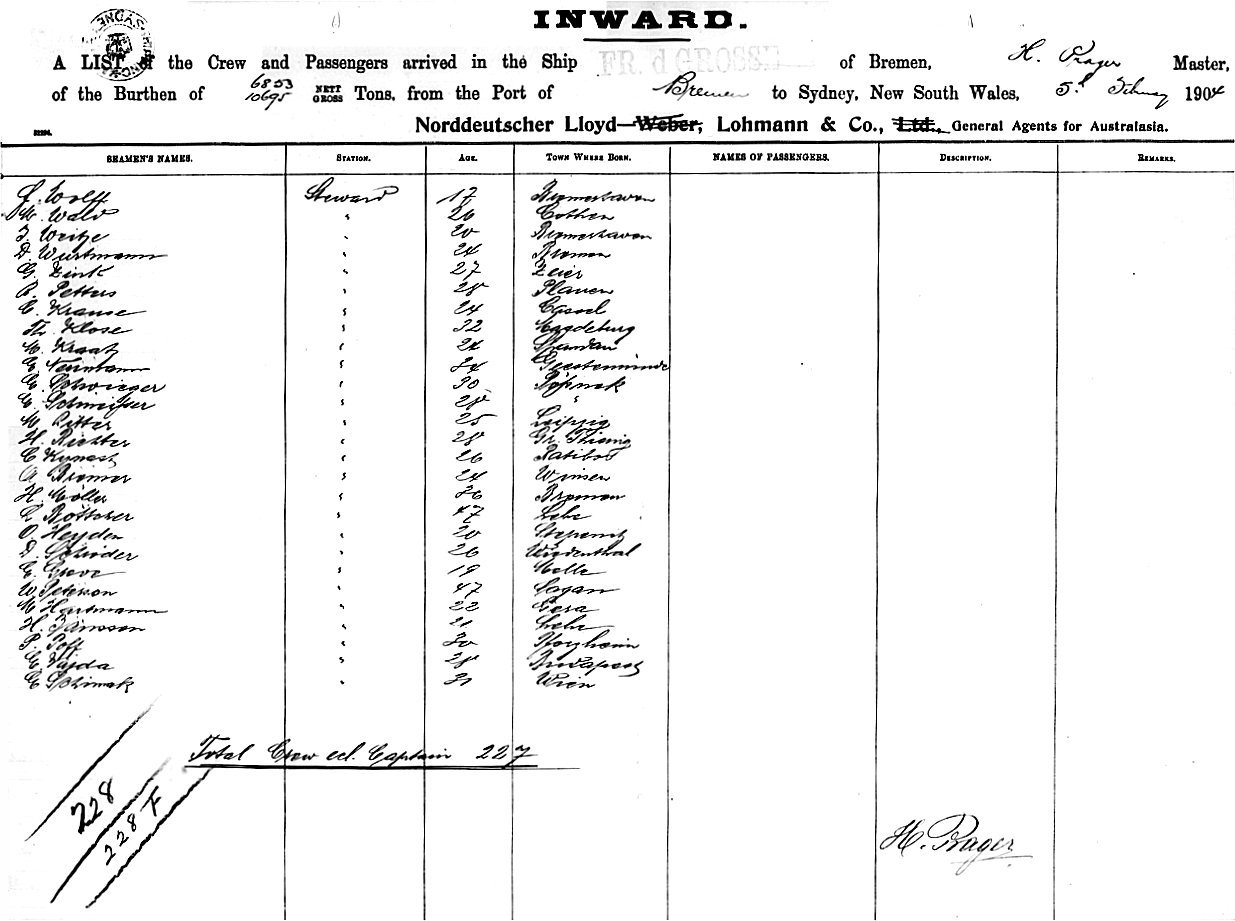 INWARD.
A LIST of the Crew and Passengers arrived in the Ship FR. d GROSSE of Bremen, H. Prager Master,
of the Burthen of 6853 NETT 10695 GROSS Tons, from the Port of Bremen to Sydney, New South Wales, 5. 1904
Norddeutscher Lloyd—Weber, Lohmann & Co., Ltd., General Agents for Australasia.
SEAMEN'S NAMES. STATION. AGE. TOWN WHERE BORN. NAMES OF PASSENGERS. DESCRIPTION. REMARKS.
Wolff Steward 17 Bremerhaven
M. Wald " 26 Cothen
Weitze " 20 Bremerhaven
D. Wurtmann " 24 Bremen
G. Zink " 27 Zeier
Petters " 28 Plauen
C. Krause " 24 Cassel
Th. Klose " 32 Magdeburg
M. Kraatz " 24 Spandau
Neumann " 34 Geestemünde
Schwieger " 30 Pössnek
Schmeisser " 28 "
M. Ritter " 25 Leipzig
H. Richter " 28 Gr. Thiemig
C. Kunert " 26 Ratibor
A. Riemer " 24 Winsen
H. Möller " 36 Bremen
Böttcher " 47 Lehe
O. Heyden " 20 Stepenitz
D. Schröder " 26
Greve " 19 Melle
W. Peterson " 47 Sagan
M. Hartmann " 22 Gera
H. Janssen " 21 Lehe
P. Poff " 30 Pforzheim
E. Vajda " 28 Budapest
Schimak " 31 Wien
Total Crew ecl. Captain 227
228
228 F
H. Prager